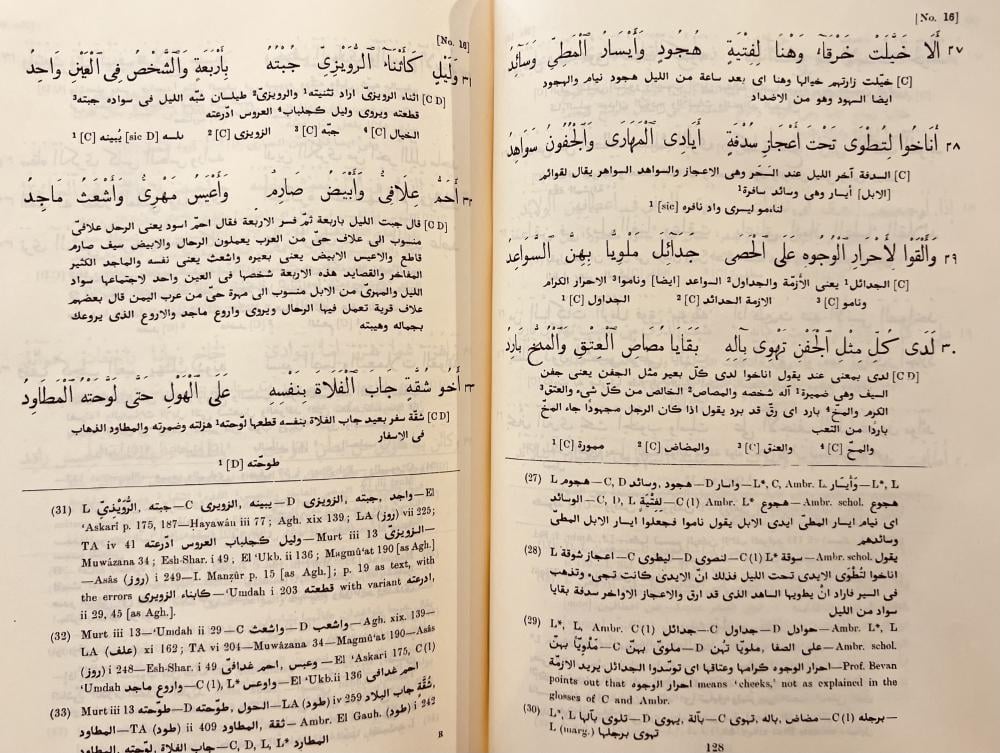 [No. 16]
٢٧ أَلَا خَيَّلَتْ خَرْقَآءُ وَهْنًا لِفِتْيَةٍ هُجُودٍ وَأَيْسَارُ الْمَطِيِّ وَسَائِدُ
[C] خيّلت زارتهم خيالها وهنا اى بعد ساعة من الليل هجود نيام والهجود
ايضا السهود وهو من الاضداد
٢٨ أَنَاخُوا لِتُطْوَى تَحْتَ أَعْجَازِ سُدْفَةٍ أَيَادِى الْمَهَارَى وَالْجُفُونُ سَوَاهِدُ
[C] السدفة آخر الليل عند السَحَر وهى الاعجاز والسواهد السواهر يقال لقوائم
[الابل] أيسار وهى وسائد سافرة¹
¹ [sic] لناءمو ليسرى واد نافره
٢٩ وَأَلْقَوْا لِأَحْرَارِ الْوُجُوهِ عَلَى الْحَصَى جَدَائِلَ مَلْوِيًّا بِهِنَّ السَّوَاعِدُ
[C] الجدائل¹ يعنى الأزمّة والجداول² السواعد [ايضا] وناموا³ الاحرار الكرام
¹ [C] الجداول ² [C] الازمة الحدائد ³ [C] ونامو
٣٠ لَدَى كُلِّ مِثْلِ الْجَفْنِ تَهْوِى بِآلِهِ بَقَايَا مُصَاصِ الْعِتْقِ وَالْمُخُّ بَارِدُ
[C D] لدى بمعنى عند يقول اناخوا لدى كلّ بعير مثل الجفن يعنى جفن
السيف وهى ضميرة¹ آله شخصه والمصاص² الخالص من كلّ شىء والعتق³
الكرم والمخّ⁴ بارد اى رقّ قد برد يقول اذا كان الرجل مجهودًا جاء المخّ
باردًا من التعب
¹ [C] ممورة ² [C] والمضاض ³ [C] والعنق ⁴ [C] والمخّ
(27) L هجوم—C, D هجود, وسائد—D واسار—L*, C, Ambr. L. وَأَيْسَار—L*, L
الوسائد—C, D, L لِفِتْيَةٍ—C (1) Ambr. L* هجوع—Ambr. schol. هجوع
اى نيام ايسار المطىّ ايدى الابل يقول ناموا فجعلوا ايسار الابل المطىّ
وسائدهم
(28) L اعجاز شوقة—C ليطوى—D لنضوى—C (1) L* سوقة—Ambr. schol. يقول
اناخوا لتُطْوَى الايدى تحت الليل فذلك انّ الايدى كانت تجىء وتذهب
فى السير فاراد انْ يطويها الساهد الذى قد ارق والاعجاز الاواخر سدفة بقايا
سواد من الليل
(29) L*, L, Ambr. C (1) جدائل—C جداول—D حوادل—Ambr. L*, L
مَلْوِيًّا بهنّ—C ملوىّ بهنّ—D على الصفا, ملويّا تُهن—Ambr. schol.
احرار الوجوه كرامها وعتاقها اى توسّدوا الجدائل يريد الازمّة—Prof. Bevan
points out that احرار الوجوه means ‘cheeks,’ not as explained in the
glosses of C and Ambr.
(30) L*, L تلوى بآلها—D بآلة, يهوى—C مضاض, باله, تهوى—C (1) برجله—
L (marg.) تهوى برجلها
128
[No. 16]
٣١ وَلَيْلٍ كَأَثْنَاءِ الرُّوَيْزِىِّ جُبْتُهُ بِأَرْبَعَةٍ وَالشَّخْصُ فِى الْعَيْنِ وَاحِدُ
[C D] اثناء الرويزىّ اراد تثنيته¹ والرويزىّ² طيلسان شبّه الليل فى سواده جبته³
قطعته ويروى وليل كجلباب⁴ العروس ادّرعته
¹ [C] يُبينه [sic D] بلسه ² [C] الزويزى ³ [C] جبّه ⁴ [C] الخيال
٣٢ أَحَمُّ عِلَافِىٌّ وَأَبْيَضُ صَارِمٌ وَأَعْيَسُ مَهْرِىٌّ وَأَشْعَثُ مَاجِدُ
[C D] قال جبت الليل باربعة ثمّ فسر الاربعة فقال احمّ اسود يعنى الرحل علافىّ
منسوب الى علاف حىّ من العرب يعملون الرحال والابيض سيف صارم
قاطع والاعيس الابيض يعنى بعيره واشعث يعنى نفسه والماجد الكثير
المفاخر والقصايد هذه الاربعة شخصها فى العين واحد لاجتماعها سواد
الليل والمهرىّ من الابل منسوب الى مهرة حىّ من عرب اليمن قال بعضهم
علاف قرية تعمل فيها الرحال ويروى واروع ماجد والاروع الذى يروعك
بجماله وهيبته
٣٣ أَخُو شُقَّةٍ جَابَ الْفَلَاةَ بِنَفْسِهِ عَلَى الْهَوْلِ حَتَّى لَوَّحَتْهُ الْمَطَاوِدُ
[C D] شقّة سفر بعيد جاب الفلاة بنفسه قطعها لوّحته¹ هزلته وضمرته والمطاود الذهاب
فى الاسفار
¹ [D] طوحّته
(31) L الرُّوَيْذِىِّ, جبته—C يبينه, الزويرى—D واجد, جبته, الزويزى—El
‘Askari p. 175, 187—Ḥayawán iii 77; Agh. xix 139; LA (روز) vii 225;
TA iv 41 وليل كجلباب العروس ادّرعته—Murt iii 13 الزويرىّ—
Muwázana 34; Esh-Shar. i 49; El ‘Ukb. ii 136; Magmû‘at 190 [as Agh.]
—Asâs (روز) i 249—I. Manẓûr p. 15 [as Agh.]; p. 19 as text, with
the errors كابناء الزويرى—‘Umdah i 203 قطعته with variant ادرعته,
ii 29, 45 [as Agh.].
(32) Murt iii 13—‘Umdah ii 29—C واشعث—D واشعب—Agh. xix. 139—
LA (علف) xi 162; TA vi 204—Muwázana 34—Magmû‘at 190—Asâs
(روز) i 248—Esh-Shar. i 49 وعبس, احم غدافىّ—El ‘Askari 175, C (1)
‘Umdah واروع ماجد—C (1), L* واوعس—El ‘Ukb. ii 136 احم غدافى
(33) Murt iii 13 طوحته—D لوّحته—LA (طود) iv 259 شُقَّة جاب البلاد, الحول
المطاود—TA (طود) ii 409 شقة, المطاود—Ambr. El Gauh. (طود) i 242
جاب الفلاة, لوّحته, المطاود—C, D, L, L* المطارد
8